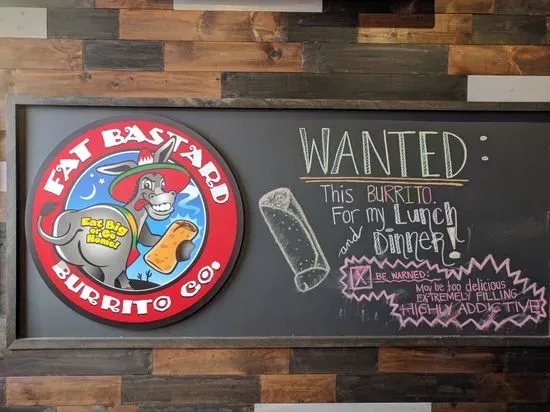 FAT BASTARD
Eat Big
or Go
Home!
BURRITO CO.
WANTED:
This BURRITO
For my Lunch
and Dinner!
X BE WARNED:
May be too delicious
EXTREMELY FILLING
HIGHLY ADDICTIVE